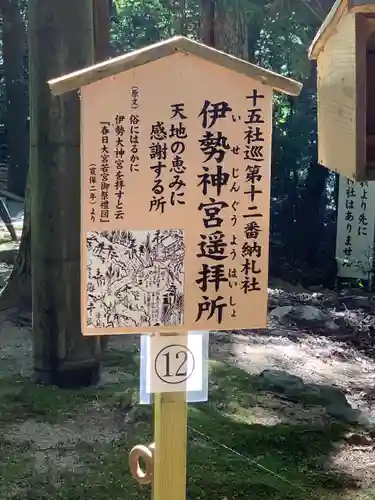 十五社巡第十二番納札社
伊勢神宮遥拝所
いせじんぐうようはいしょ
天地の恵みに
感謝する所
(原え)
俗にはるかに
伊勢大神宮を拝すと云
『春日大宮若宮御祭礼図』
(寛保二年)より
12
より先に
はありません